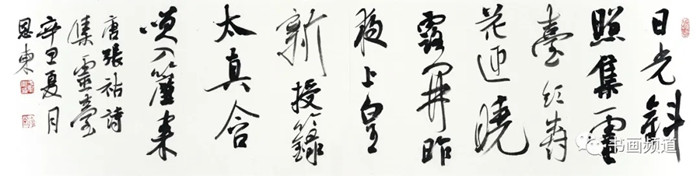 日光斜
照集靈
臺紅樹
花迎曉
露開昨
夜上皇
新授籙
太真含
咲入簾来
唐張祜詩
集靈臺
辛丑夏月
恩東
书画频道